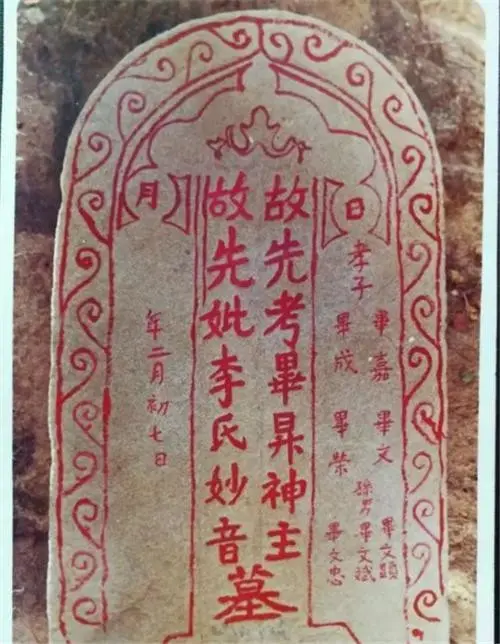 日
月
孝子
畢嘉 畢文
畢成 畢榮
孫男
畢文顕
畢文斌
畢文忠
故先考畢昇神主
故先妣李氏妙音
墓
年二月初七日